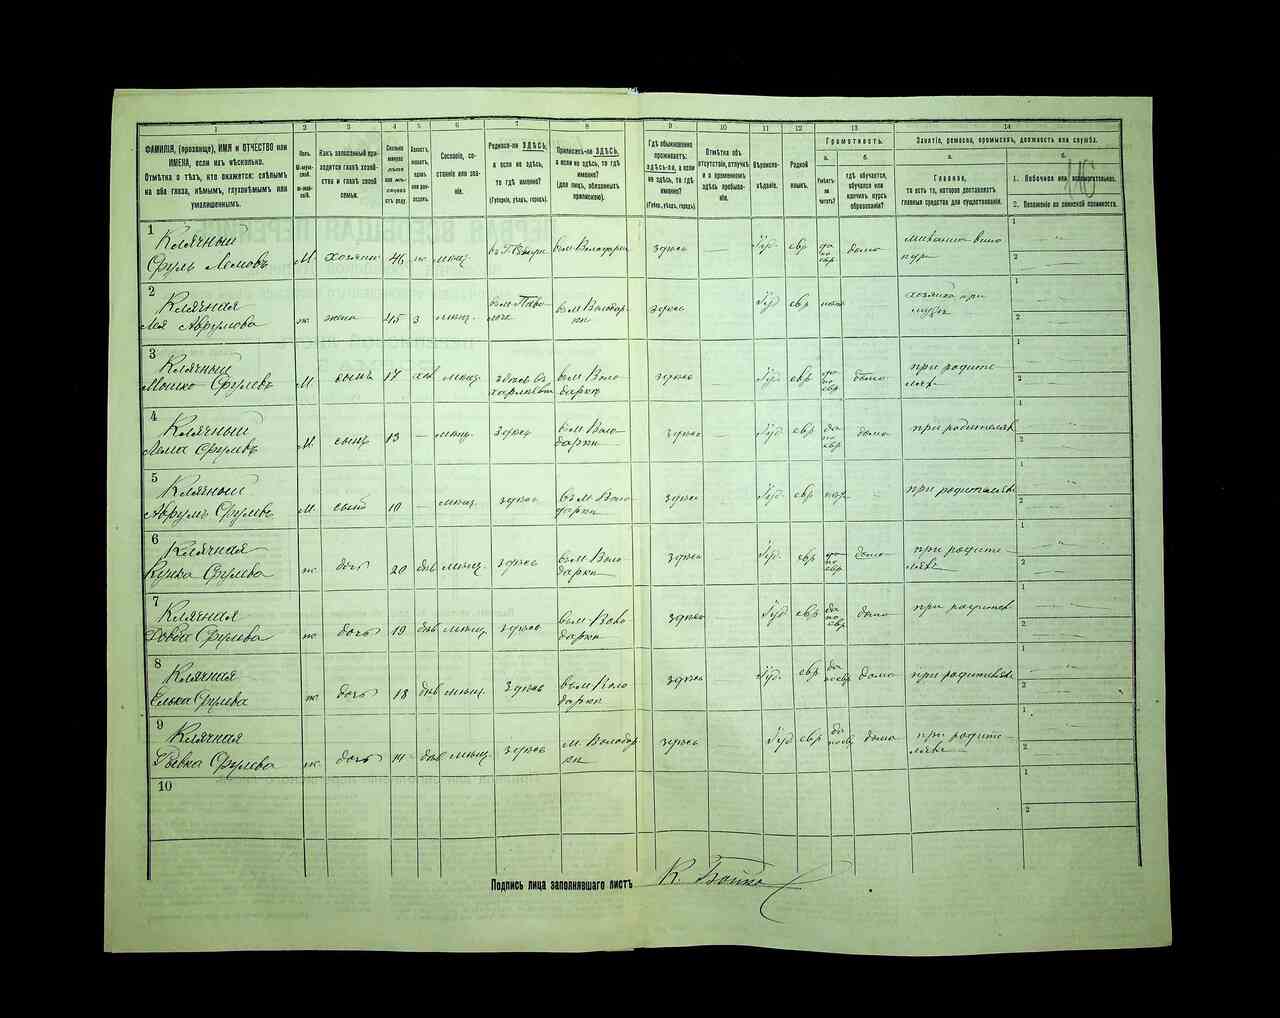 1 2 3 4 5 6 7 8 9 10 11 12 13 14
ФАМИЛІЯ, (прозвище), ИМЯ и ОТЧЕСТВО или
ИМЕНА, если ихъ нѣсколько.
Отмѣтка о тѣхъ, кто окажется: слѣпымъ
на оба глаза, нѣмымъ, глухонѣмымъ или
умалишеннымъ.
Полъ.
М-мужской.
Ж-женскій.
Какъ записанный приходится
главѣ хозяйства
и главѣ своей
семьи.
Сколько
минуло
лѣтъ
или мѣсяцевъ
отъ роду.
Сословіе, состояніе
или званіе.
Родился-ли ЗДѢСЬ,
а если не здѣсь,
то гдѣ именно?
(Губернія, уѣздъ, городъ).
Приписанъ-ли ЗДѢСЬ,
а если не здѣсь, то гдѣ
именно?
(для лицъ, обязанныхъ
припискою).
Гдѣ обыкновенно
проживаетъ:
здѣсь-ли, а если
не здѣсь, то гдѣ
именно?
(Губер., уѣздъ, городъ).
Отмѣтка объ
отсутствіи, отлучкѣ
и о временномъ
здѣсь пребываніи.
Вѣроисповѣданіе.
Родной
языкъ.
Грамотность.
а. Умѣетъ-ли
читать?
б. гдѣ обучается,
обучался или
кончилъ курсъ
образованія?
Занятіе, ремесло, промыселъ, должность или служба.
а. Главное,
то есть то, которое доставляетъ
главныя средства для существованія.
б.
1. Побочное или вспомогательное.
2. Положеніе по воинской повинности.
1 Клячный
Сруль Лемовъ М хозяинъ 46 мѣщ. вм Володарки здѣсь — Іуд. евр да по евр дома
1
2
2 Клячная
Лея Аврумова ж жена 45 3 мѣщ. въ м Паволоче вм Володарки здѣсь Іуд евр нѣтъ хозяйка при мужѣ
1
2
3 Клячный
Мошко Срулевъ М сынъ 17 хол мѣщ. вм Володарки здѣсь — Іуд евр да по евр дома при родителяхъ
1
2
4 Клячный
Лема Срулевъ М сынъ 13 — мѣщ. здѣсь вм Володарки здѣсь — Іуд. евр да по евр дома при родителяхъ
1
2
5 Клячный
Аврумъ Срулевъ М сынъ 10 — мѣщ. здѣсь въ м Володарки здѣсь — Іуд. евр нѣтъ — при родителяхъ
1
2
6 Клячная
Срулева ж дочь 20 дѣв мѣщ. здѣсь вм Володарки здѣсь — Іуд. евр да по евр дома при родителяхъ
1
2
7 Клячная
Срулева ж дочь 19 дѣв мѣщ. здѣсь вм Володарки здѣсь — Іуд евр да по евр дома при родителяхъ
1
2
8 Клячная
Елька Срулева ж дочь 18 дѣв мѣщ. здѣсь вм Володарки здѣсь — Іуд. евр да по евр дома при родителяхъ
1
2
9 Клячная
Ривка Срулева ж дочь 14 дѣв мѣщ. здѣсь м. Володарки здѣсь — Іуд евр да по евр дома при родителяхъ
1
2
10
1
2
Подпись лица заполнявшаго листъ К. Бойко